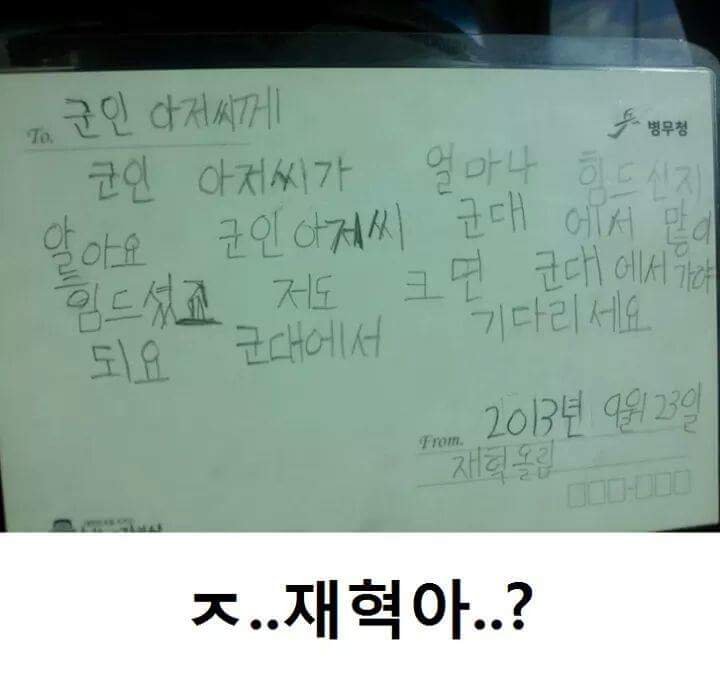 To. 군인 아저씨께
병무청
군인 아저씨가 얼마나 힘드신지
알아요 군인아저씨 군대 에서 많이
힘드셨죠 저도 크면 군대에서가야
되요 군대에서 기다리세요
2013년 9월 23일
From. 재혁올림
ㅈ..재혁아..?